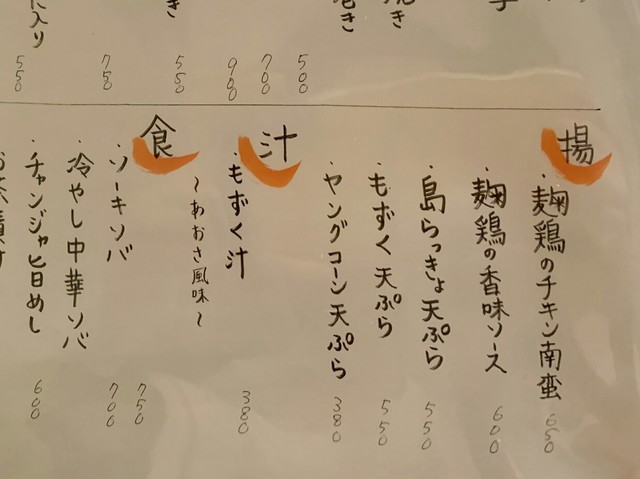 き
き
き
入り
500
700
900
550
750
550
揚
・麹鶏のチキン南蛮 650
・麹鶏の香味ソース 600
・島らっきょ天ぷら 550
・もずく天ぷら 550
・ヤングコーン天ぷら 380
汁
・もずく汁 380
〜あおさ風味〜
食
・ソーキソバ 750
・冷やし中華ソバ 700
・チャンジャ旨めし 600